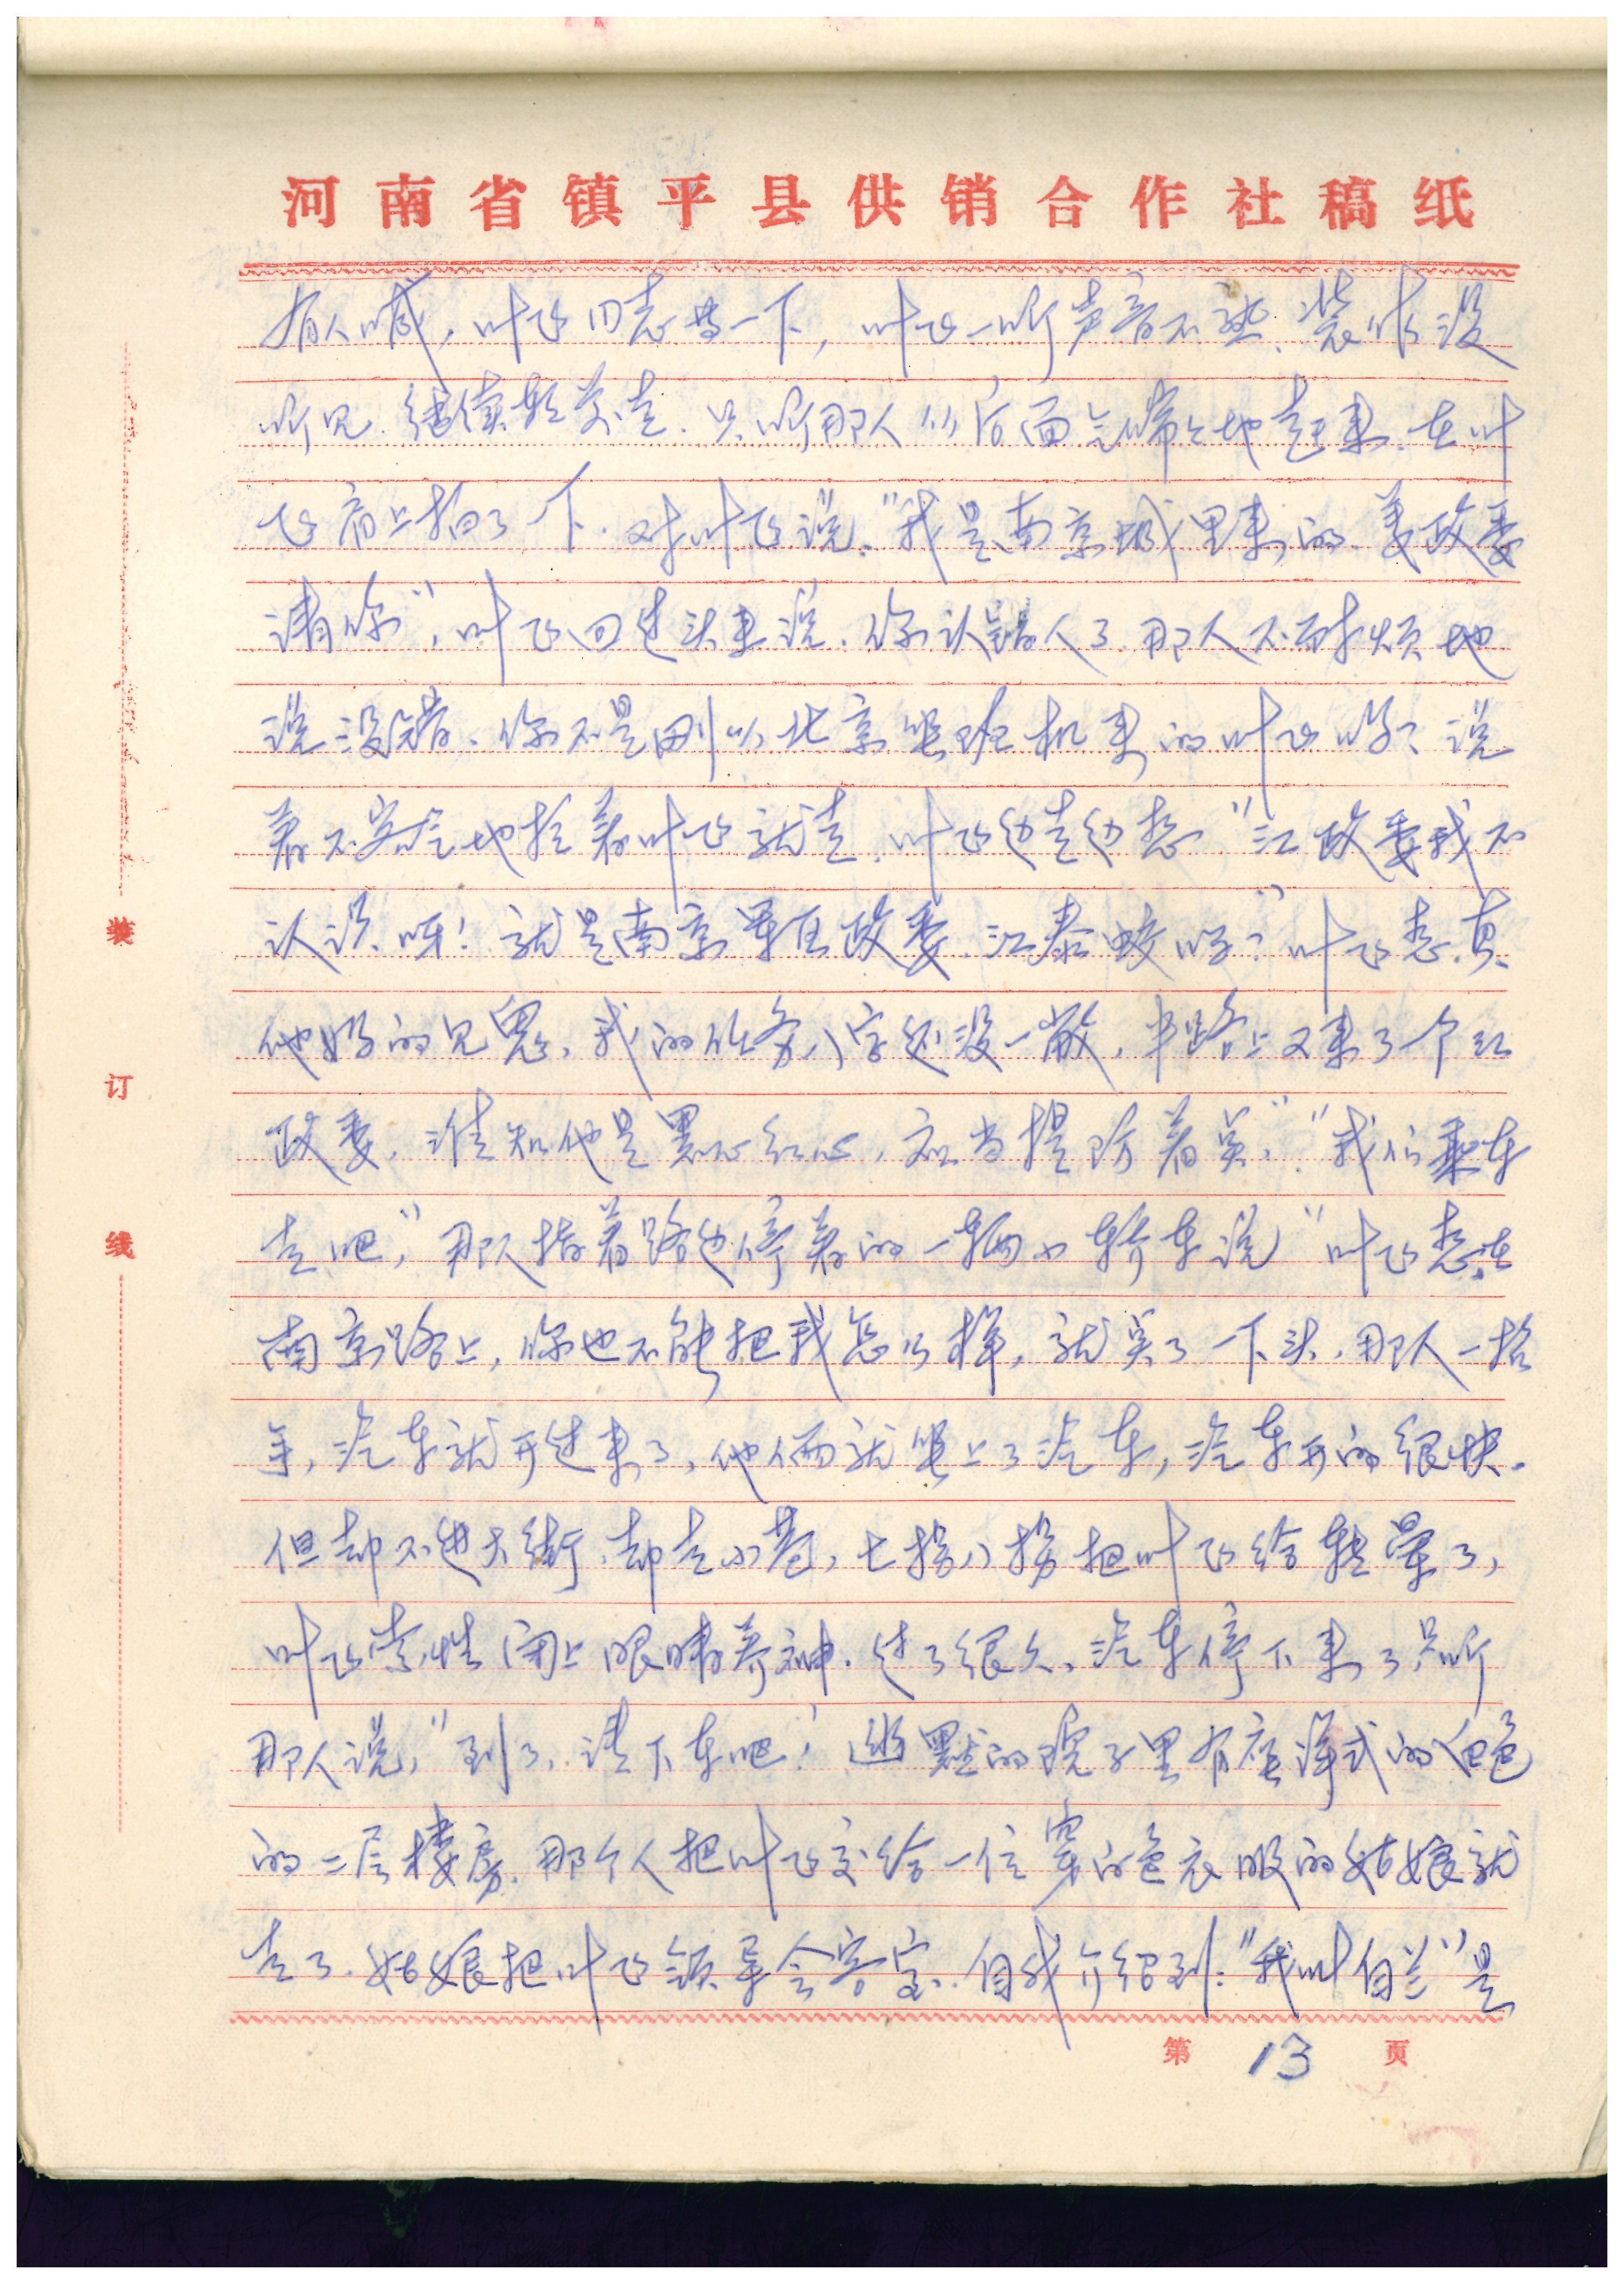 河南省镇平县供销合作社稿纸
有人喊，叶飞同志等一下，叶飞一听声音不熟、装作没
听见.继续赶着走.只听那人从后面气喘々地赶来.在叶
飞肩上拍了一下.对叶飞说："我是南京城里来的.姜政委
请你"，叶飞回过头来说.你认错人了.那人不耐烦地
说没错、你不是刚从北京坐班机来的叶飞吗？说
着不客气地拉着叶飞就走.叶飞边走边想"江政委我不
认识呀！就是南京军区政委.江泰蛟吗？"叶飞想.真
他妈的见鬼，我的任务八字还没一撇，半路上又来了个江
政委，谁知他是黑心红心，应当提防着点"."我们乘车
去吧"，那人指着路边停着的一辆小轿车说"叶飞想在
南京路上，你也不能把我怎么样，就点了一下头，那人一招
手，汽车就开过来了，他俩就坐上了汽车，汽车开的很快.
但却不进大街.却走小巷，七拐八拐把叶飞给转晕了，
叶飞索性闭上眼睛养神.过了很久、汽车停下来了只听
那人说，"到了、请下车吧！幽默的院子里有座洋式的白色
的二层楼房.那个人把叶飞交给一位穿白色衣服的姑娘就
走了.姑娘把叶飞领导会客室.自我介绍到："我叫白兰"是
装
订
线
第 13 页